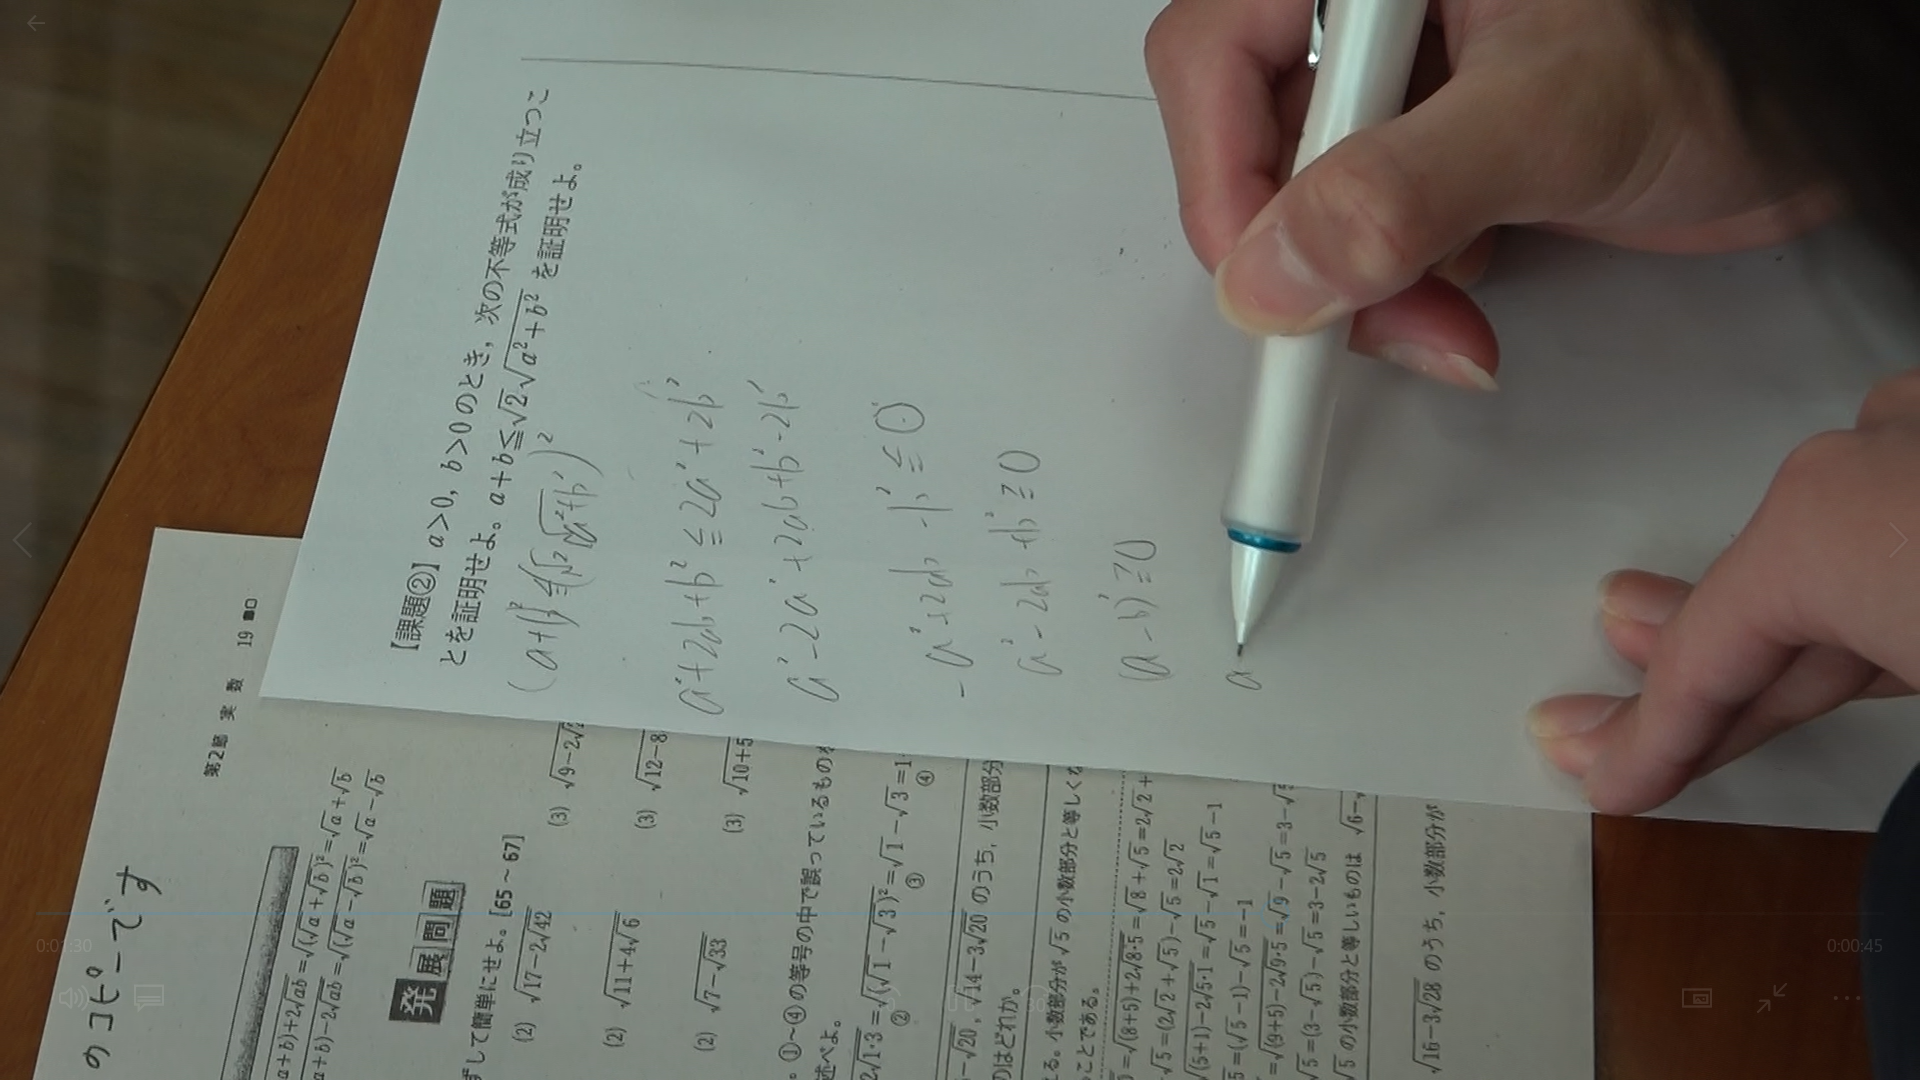 【課題②】a>0, b>0のとき, 次の不等式が成り立つこ
とを証明せよ。a+b≦√2√a²+b² を証明せよ。
a²+2ab+b² ≦ 2a²+2b²
a²-2a²+2ab+b²-2b²
-a²+2ab-b² ≦ 0
a²-2ab+b² ≧ 0
(a-b)² ≧ 0
a
のコピーです
第2節 実 数 19
a+b)+2√ab=√(√a+√b)²=√a+√b
a+b)-2√ab=√(√a-√b)²=√a-√b
発展問題
ずして簡単にせよ。[65~67]
(2) √17-2√42
(2) √11+4√6 (3) √12-8
(2) √7-√33 (3) √10+5
。①~④の等号の中で誤っているものを
述べよ。
2√1・3=√(√1-√3)²=√1-√3=1-
② ③ ④
-√20, √14-3√20 のうち, 小数部分
のはどれか。
える。小数部分が√5の小数部分と等しくな
ことである。
)=√(8+5)+2√8・5=√8+√5=2√2+
√5=(2√2+√5)-√5=2√2
√(5+1)-2√5・1=√5-√1=√5-1
5=(√5-1)-√5=-1
=√(9+5)-2√9・5=√9-√5=3-√5
√5=(3-√5)-√5=3-2√5
√5の小数部分と等しいものは √6-√
√16-3√28 のうち, 小数部分が
0:01:30
0:00:45